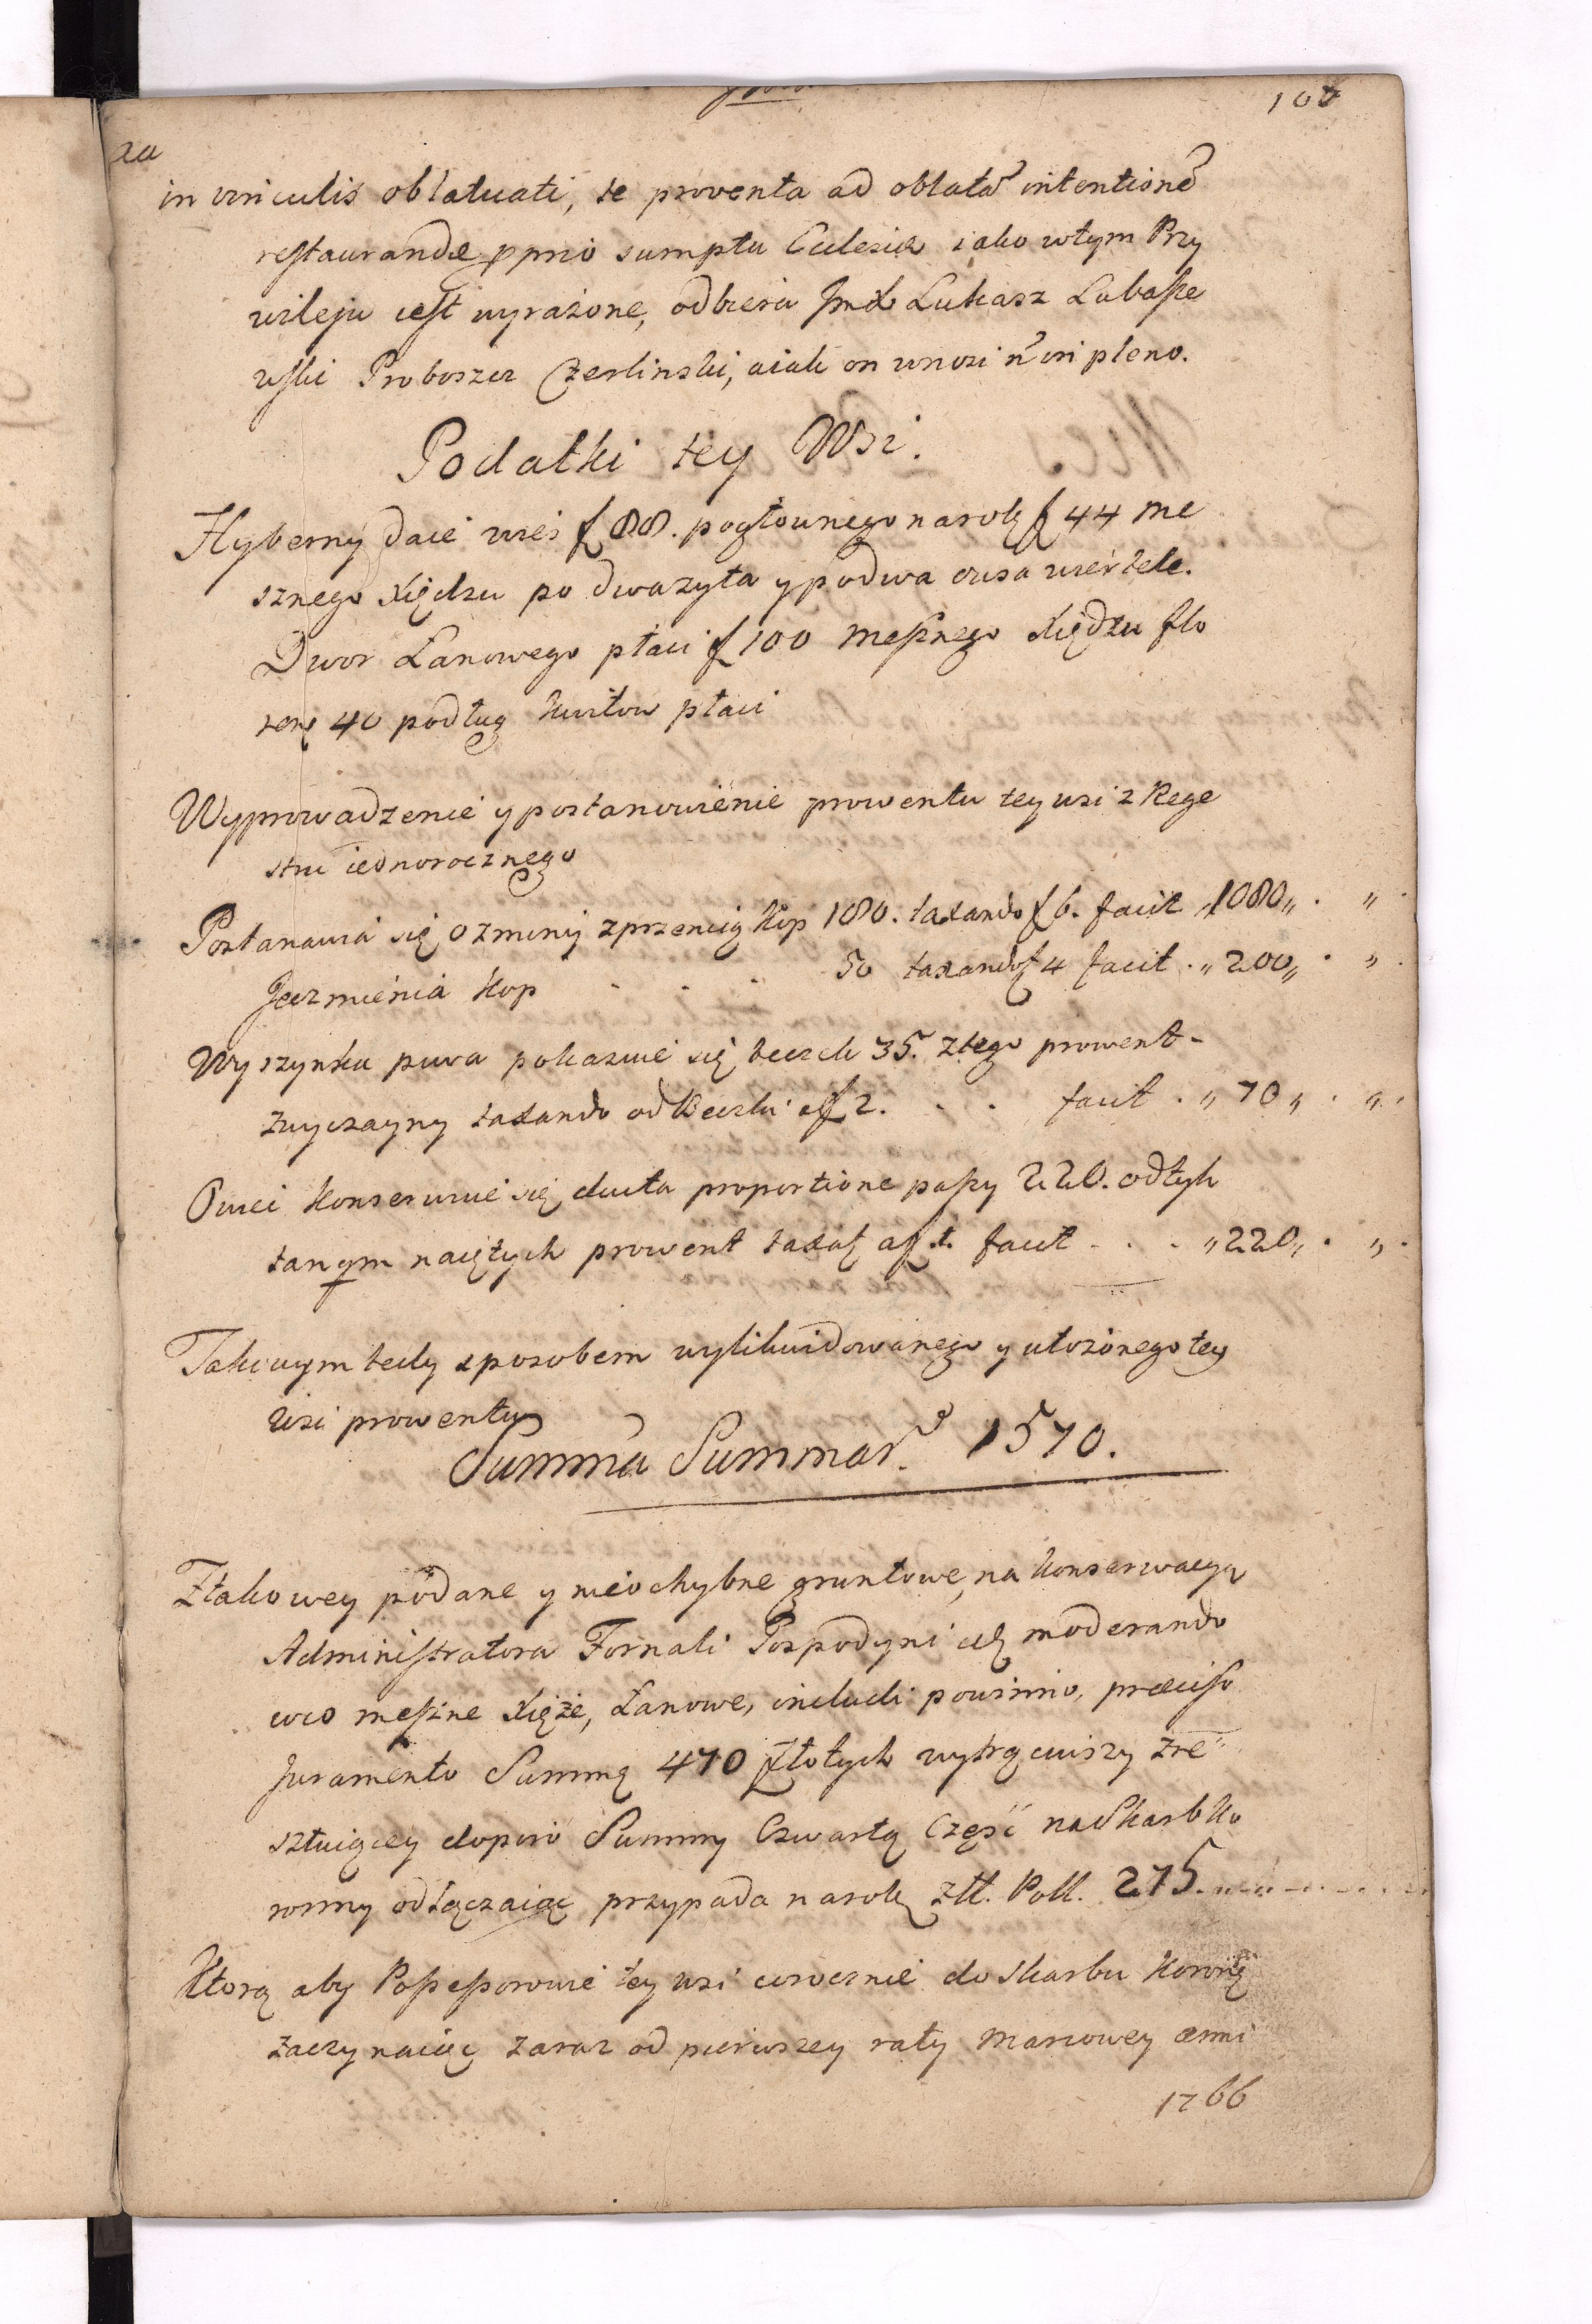 108
in vinculis oblatuati, te proventa ad oblatã intentionẽ
restaurandæ pprio sumptu Eclesiæ iako wtym Przy
wileju iest wyrażone, odbiera Jmć X Lukasz Lubasze
wski Proboszcz Czerlinski, a iak on wnosi ñ in pleno.
Podatki tey Wsi.
Hyberny daie wies f 88. pogłownego na rok f 44 me
sznego Xiędzu po dwa zyta y po dwa owsa wiertele.
Dwor Łanowego płaci f 100 Mesznego Xiędzu flo
renę 40 podług kwitow płaci
Wyprowadzenie y postanowienie prowentu tey wsi z Rege
stru iednorocznego
Postanawia się Ozminy z przenicą Kop 180. taxando f 6. facit „1080„ . „
Jęczmienia Kop - - - 50 taxando f 4 facit . „ 200„ . „ .
Wyszynku piwa pokazuie się beczek 35. z tego prowent-
zwyczayny taxando od Beczki a f 2. . . facit . „ 70 „ . „ .
Owci konserwuie się ducta proportione paszy 220. od tych
tanqm naiętych prowent taxat a f 1. facit - . - „220„ . „ .
Takowym tedy sposobem wylikwidowanego y ułożonego tey
wsi prowentu
Summa Summar. 1570.
Ztakowey podane y nieochybne gruntowe, na konserwacyą
Administratora Fornali Gospodyni etc moderando
wco meszne Xięże, Łanowe, includi powinno, præciso
Juramento Summą 470 Złotych wytrąciwszy z re
sztuiącey dopiro Summy Czwartą Część na Skarb Ko
ronny odłączaiąc przypada na rok Złł. Poll. 275.
Ktorą aby Possessorowie tey wsi corocznie do skarbu Koronę
zaczynaiąc zaraz od pierwszey raty Marcowey anni
1766